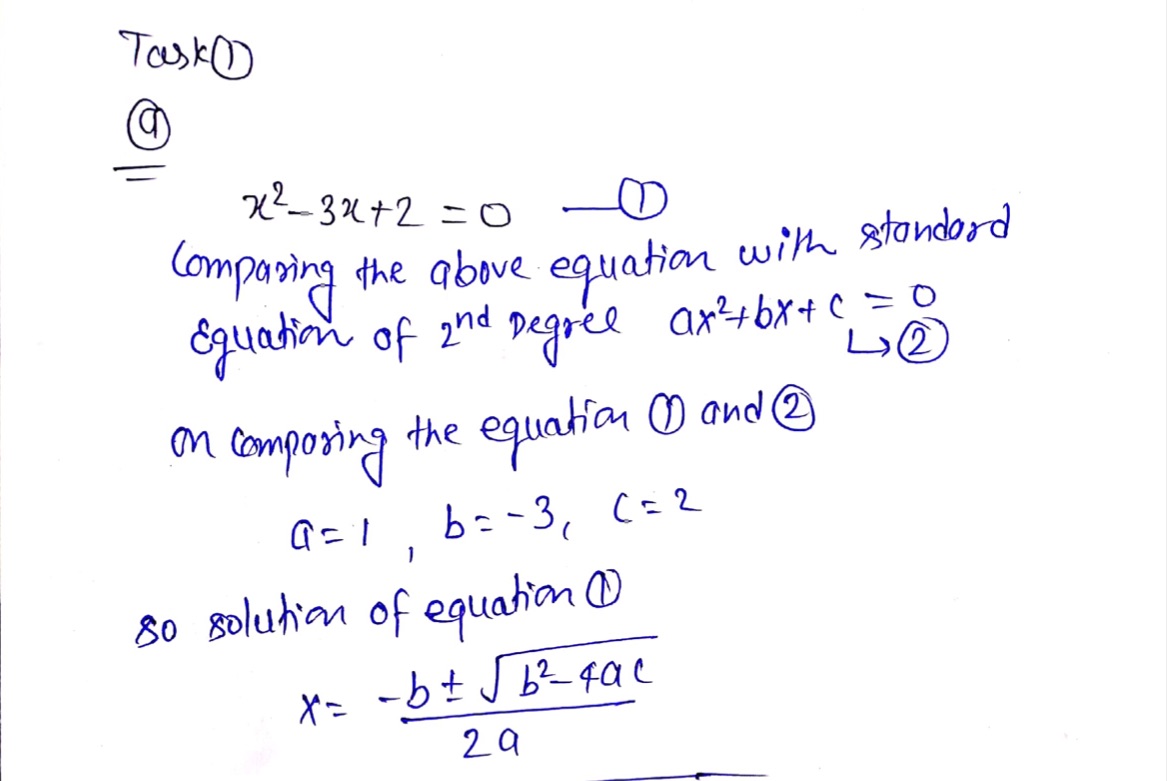 Task ①
ⓐ
x² - 3x + 2 = 0 — ①
Comparing the above equation with standard
Equation of 2nd Degree ax² + bx + c = 0
↳ ②
on comparing the equation ① and ②
a = 1, b = -3, c = 2
so solution of equation ①
x = -b ± √(b² - 4ac)
2a